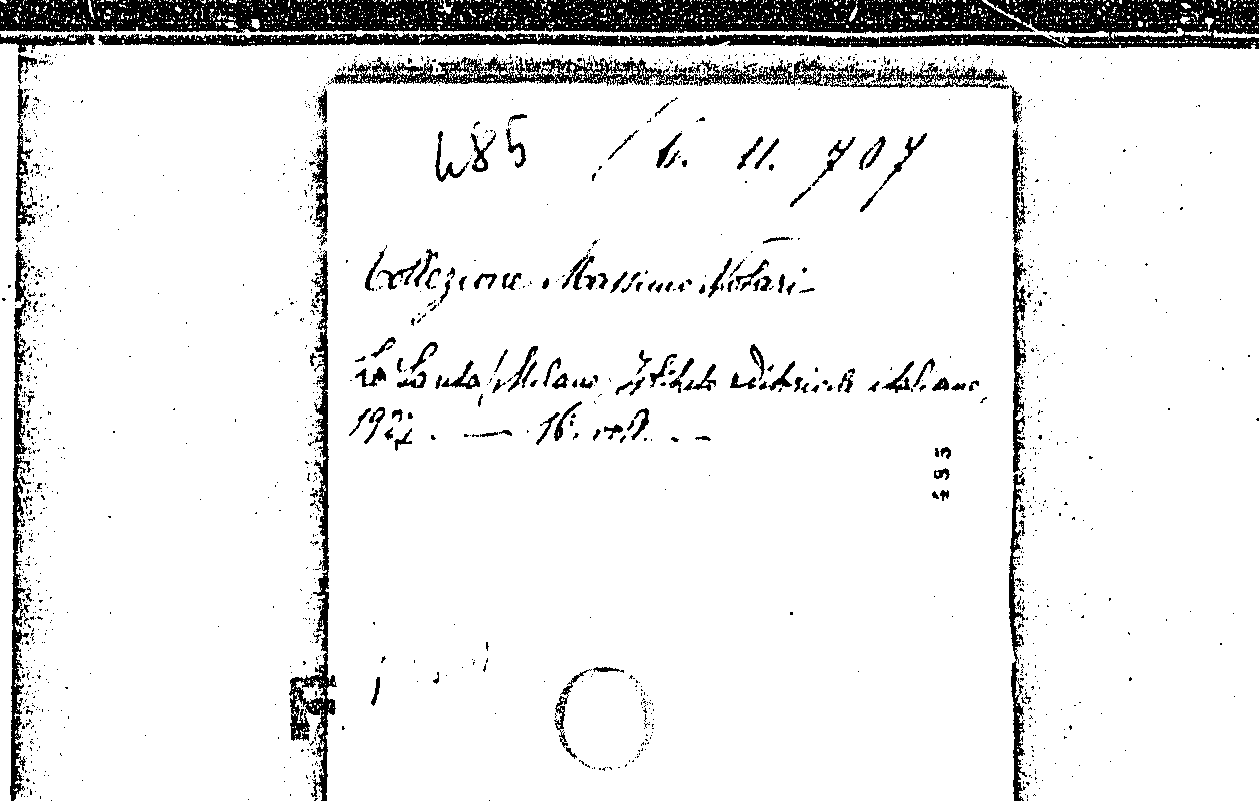 485 / 6. 11. 707
Collezione Massimo Notari
La Santa / Milano, Istituto editoriale italiano,
1927. — 16°. rott. . —